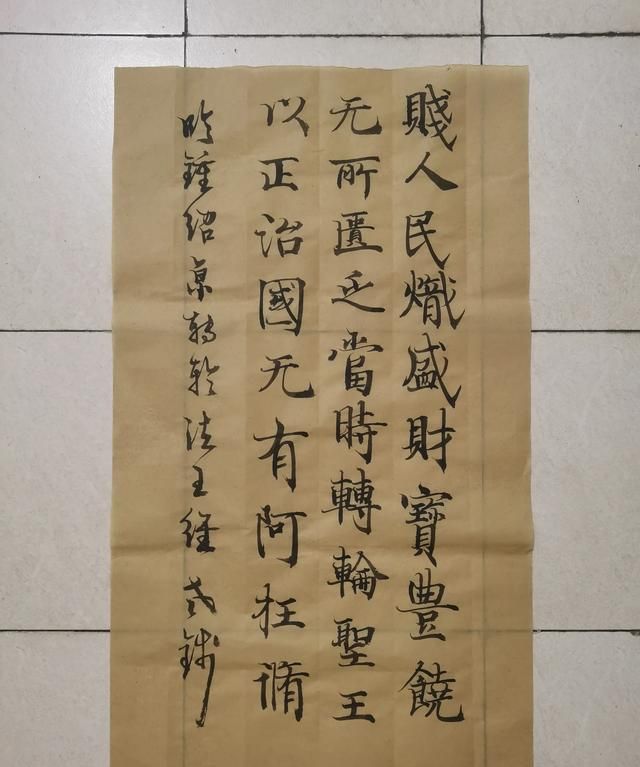 賤人民熾盛財寶豊饒
无所匱乏當時轉輪聖王
以正治國无有阿枉脩
临鍾紹京轉輪法王經